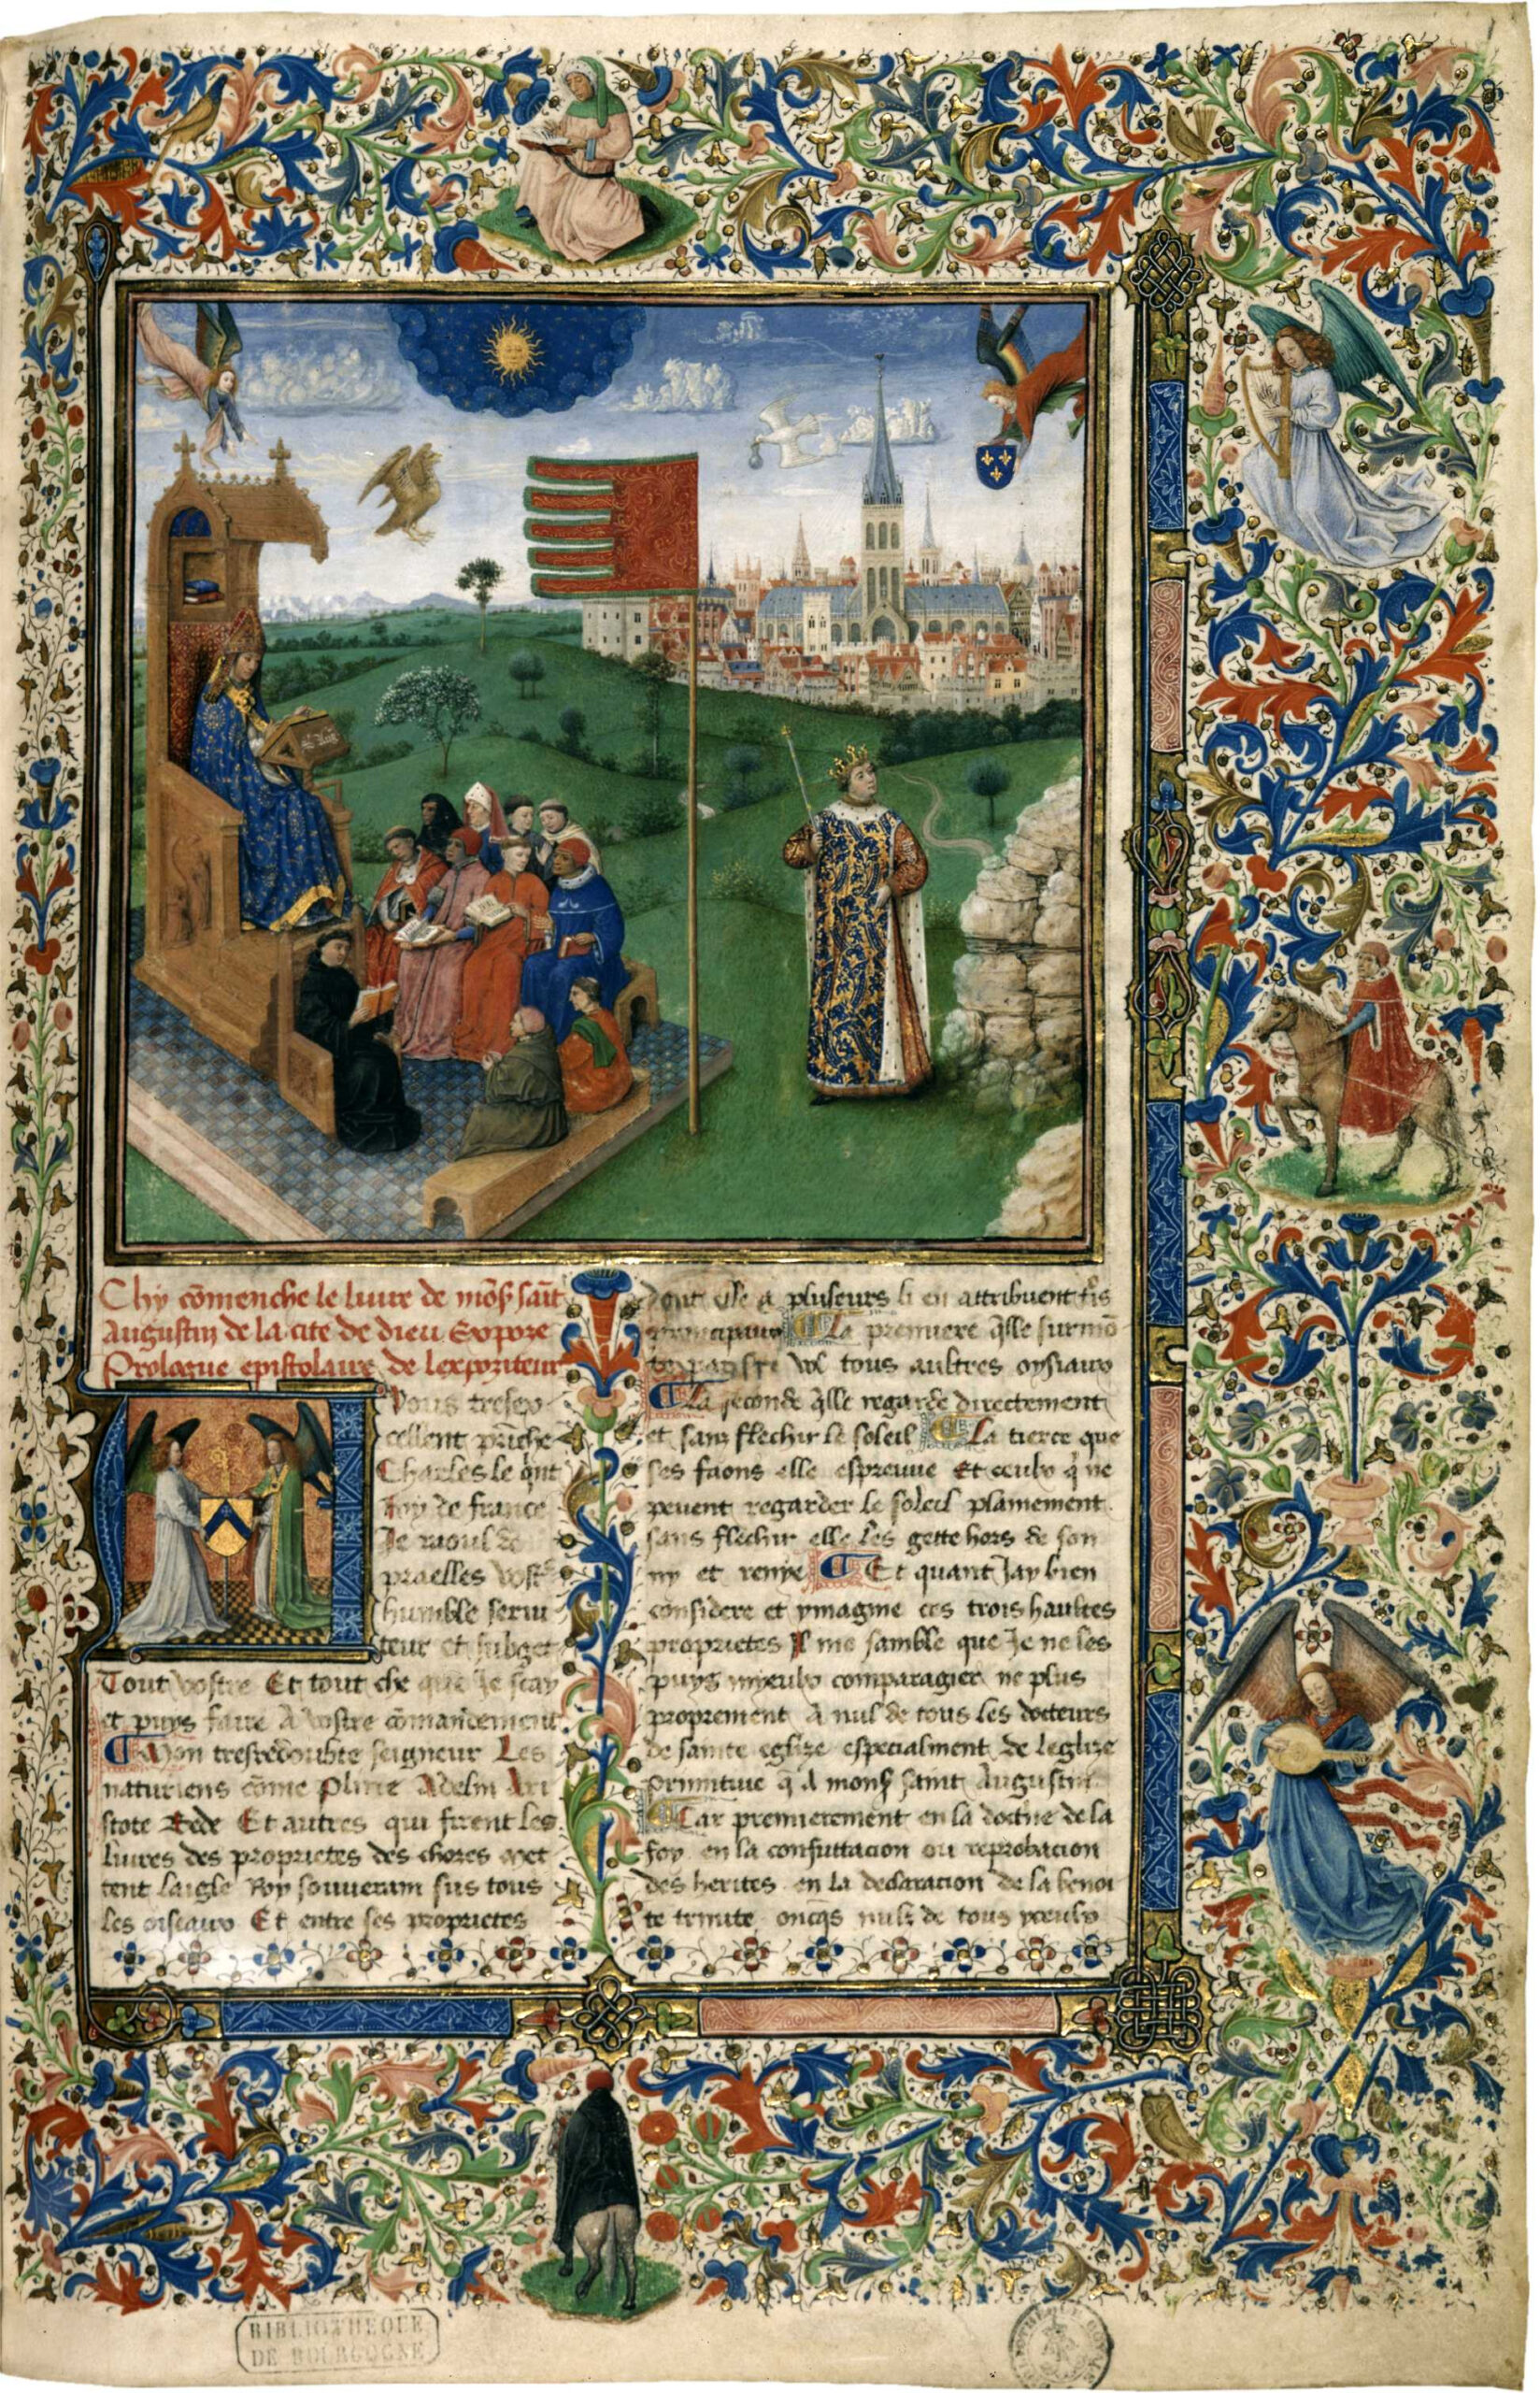 Chy cōmenche le liure de mōs̄ saīt
augustin de la cite de dieu Expoze
Prologue epistolaire de lexpoziteur
A vous tresex
cellent prīche
Charles le qnt
roy de france
Je raoul de
praelles vostr̄
humble serui
teur et subget
Tout vostre Et tout che que Je scay
et puys faire A vostre cōmandement
Mon tresredoubte seigneur Les
naturiens cōme Pline Adelin Ari
stote Bede Et autres qui firent les
liures des proprietes des choses met
tent laigle Roy souuerain sus tous
les oiseaux Et entre ses proprietes
dont elle a plusieurs li en attribuent tr̄s
principaux La premiere q̄lle surmō
te vol tous aultres oysiaux
La seconde q̄lle regarde directement
et sans flechir le soleil La tierce que
ses faons elle espreuue Et ceulx q̄ ne
peuent regarder le soleil plainement
sans flechir elle les gette hors de son
ny et renye Et quant Jay bien
considere et ymagine ces trois haultes
proprietes Il me samble que Je ne les
puys myeulx comparagier ne plus
proprement A nul de tous les docteurs
de sainte eglize especialment de leglize
primitiue q̄ A mons̄ saint Augustin
Car premierement en la doctr̄ne de la
foy en la confuttacion ou reprobacion
des herites en la declaracion de la benoi
te trinite oncq̄s nulz de tous yceulx
BIBLIOTHEQUE
DE BOURGOGNE